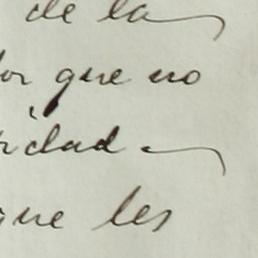 de la
or que no
idad
que les